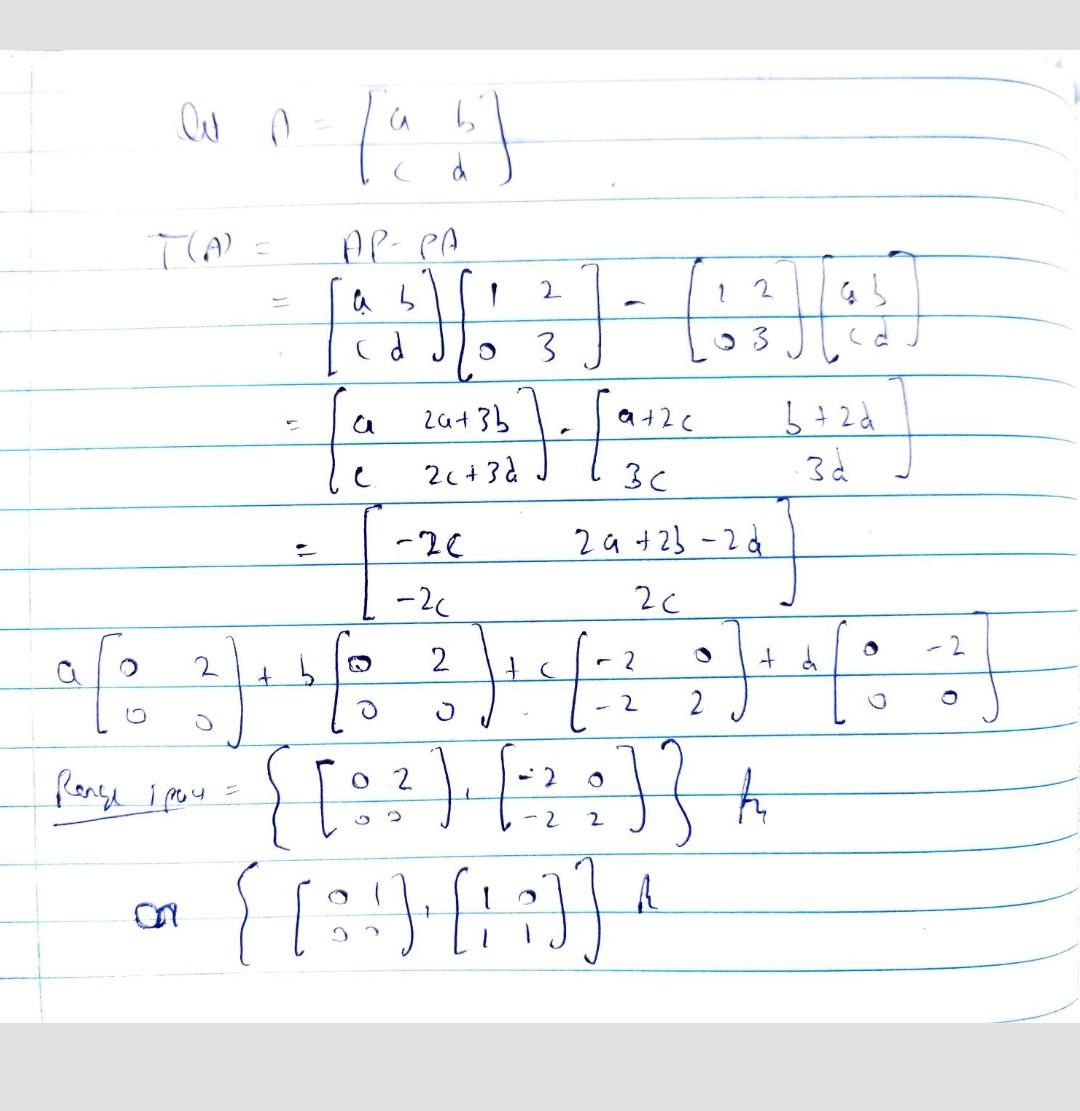 let A = [a b; c d]
T(A) = AP - PA
= [a b; c d] [1 2; 0 3] - [1 2; 0 3] [a b; c d]
= [a 2a+3b; c 2c+3d] - [a+2c b+2d; 3c 3d]
= [-2c 2a+2b-2d; -2c 2c]
a [0 2; 0 0] + b [0 2; 0 0] + c [-2 0; -2 2] + d [0 -2; 0 0]
Range = { [0 2; 0 0], [-2 0; -2 2] }
or { [0 1; 0 0], [1 0; 1 1] }